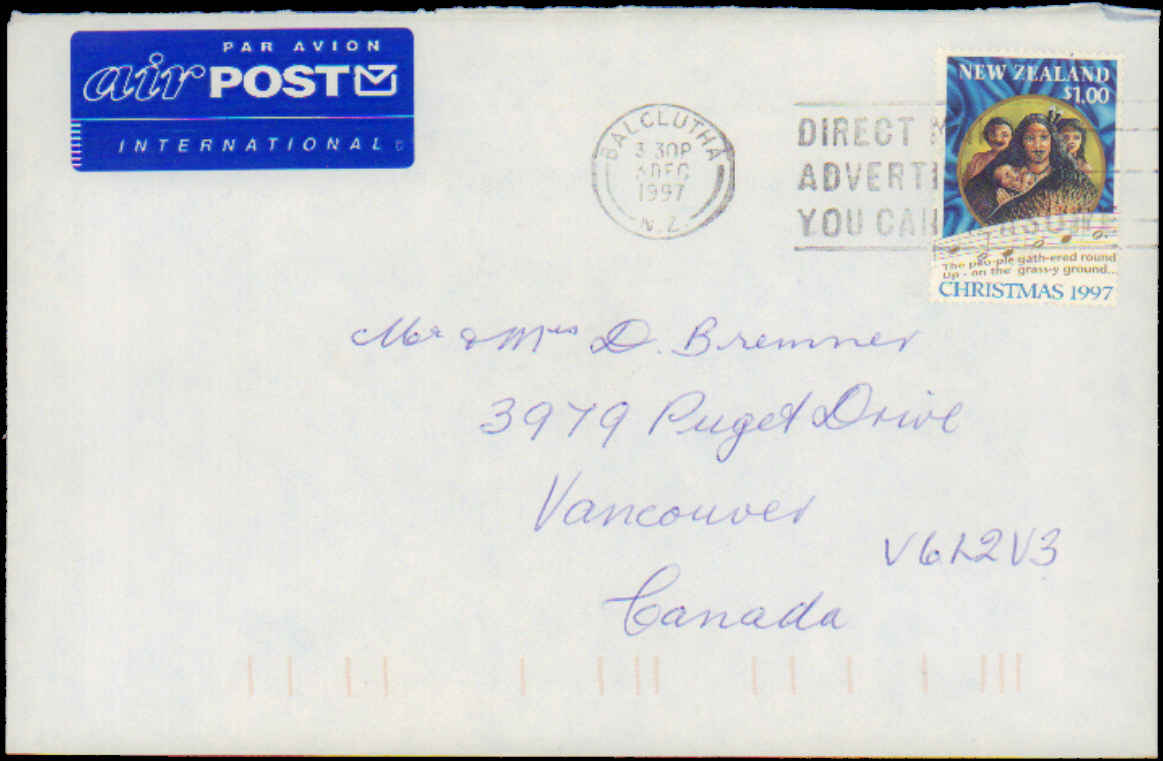 PAR AVION
air POST
INTERNATIONAL
NEW ZEALAND
$1.00
BALCLUTHA
3 30P
DEC
1997
N.Z.
DIRECT
ADVERTI
YOU CAN
The peo-ple gath-ered round
Up - on the grass-y ground...
CHRISTMAS 1997
Mr & Mrs D. Bremner
3979 Puget Drive
Vancouver
V6L2V3
Canada